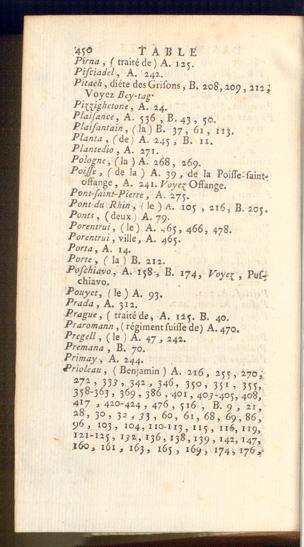 450 TABLE
Pirna, (traité de) A. 125.
Pisciadel, A. 242.
Pitach, diéte des Grisons, B. 208, 209, 212,
Voyez Bey-tag.
Pizzighetone, A. 24.
Plaisance, A. 536, B. 43, 50.
Plaisantain, (la) B. 37, 61, 113.
Planta, (de) A. 245, B. 11.
Plantedio, A. 271.
Pologne, (la) A. 268, 269.
Poisse, (de la) A. 39, de la Poisse-saint-
offange, A. 241. Voyez Offange.
Pont-saint-Pierre, A. 275.
Pont du Rhin, (le) A. 105, 216, B. 205.
Ponts, (deux) A. 79.
Porentrui, (le) A. 465, 466, 478.
Porentrui, ville, A. 465.
Porta, A. 14.
Porte, (la) B. 212.
Poschiavo, A. 158, B. 174, Voyez, Pus-
chiavo.
Pouyet, (le) A. 93.
Prada, A. 312.
Prague, (traité de, A. 125. B. 40.
Praromann, (régiment suisse de) A. 470.
Pregell, (le) A. 47, 242.
Premana, B. 70.
Primay, A. 244.
Prioleau, (Benjamin) A. 216, 255, 270,
272, 333, 342, 346, 350, 351, 355,
358-363, 369, 386, 401, 403-405, 408,
417, 420-424, 476, 516, B. 9, 21,
28, 30, 32, 33, 60, 61, 68, 69, 86,
96, 103, 104, 110-113, 115, 116, 119,
121-125, 132, 136, 138, 139, 142, 147,
160, 161, 163, 165, 169, 174, 176,